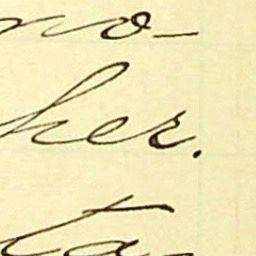 no-
her.
ta